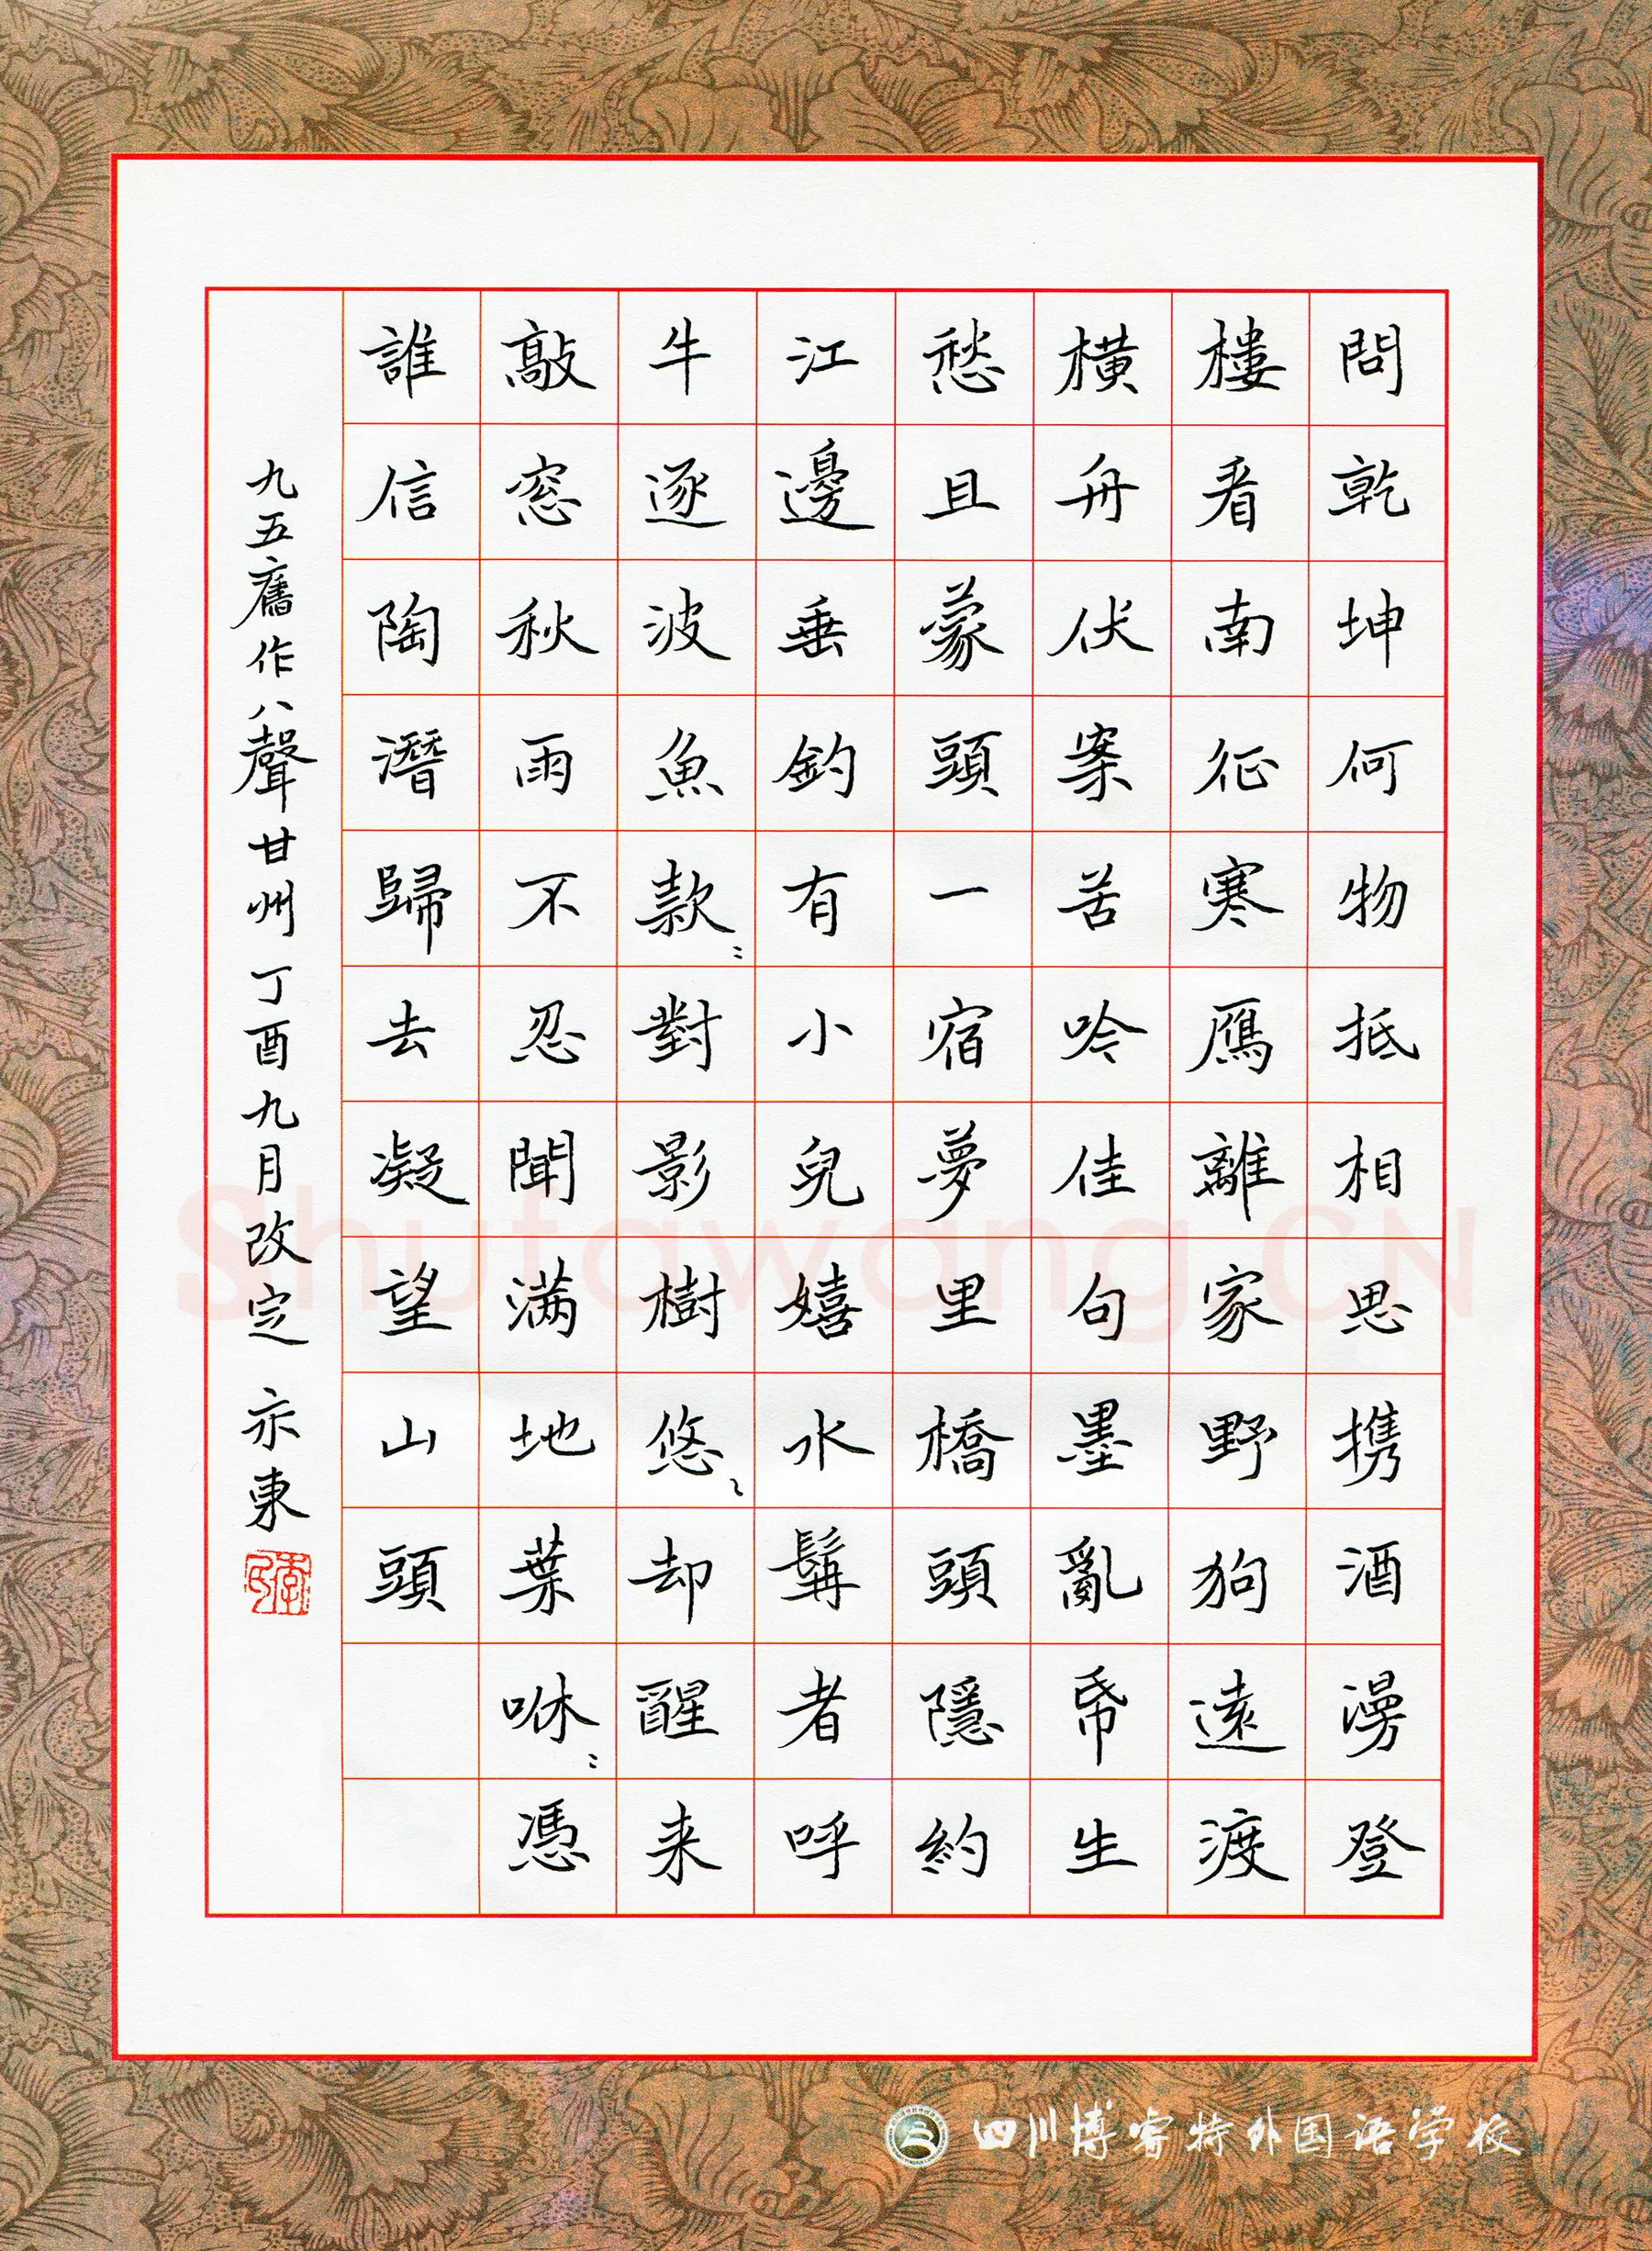 問乾坤何物抵相思携酒漫登
樓看南征寒鴈離家野狗遠渡
橫舟伏案苦吟佳句墨亂帋生
愁且蒙頭一宿夢里橋頭隱約
江邊垂釣有小兒嬉水髯者呼
牛逐波魚款〻對影樹悠〻却醒来
敲窓秋雨不忍聞满地葉咻〻憑
誰信陶潛歸去凝望山頭
九五舊作八聲甘州 丁酉九月改定 亦東
Shufawang.CN
四川博睿特外国语学校